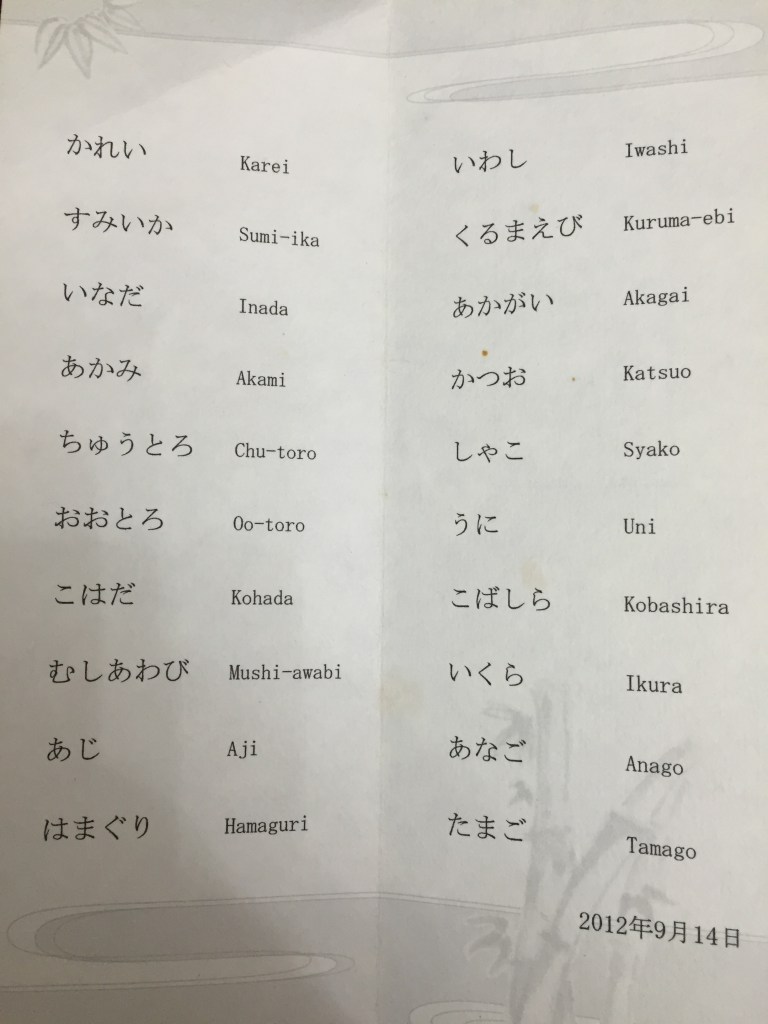 かれい Karei
すみいか Sumi-ika
いなだ Inada
あかみ Akami
ちゅうとろ Chu-toro
おおとろ Oo-toro
こはだ Kohada
むしあわび Mushi-awabi
あじ Aji
はまぐり Hamaguri
いわし Iwashi
くるまえび Kuruma-ebi
あかがい Akagai
かつお Katsuo
しゃこ Syako
うに Uni
こばしら Kobashira
いくら Ikura
あなご Anago
たまご Tamago
2012年9月14日